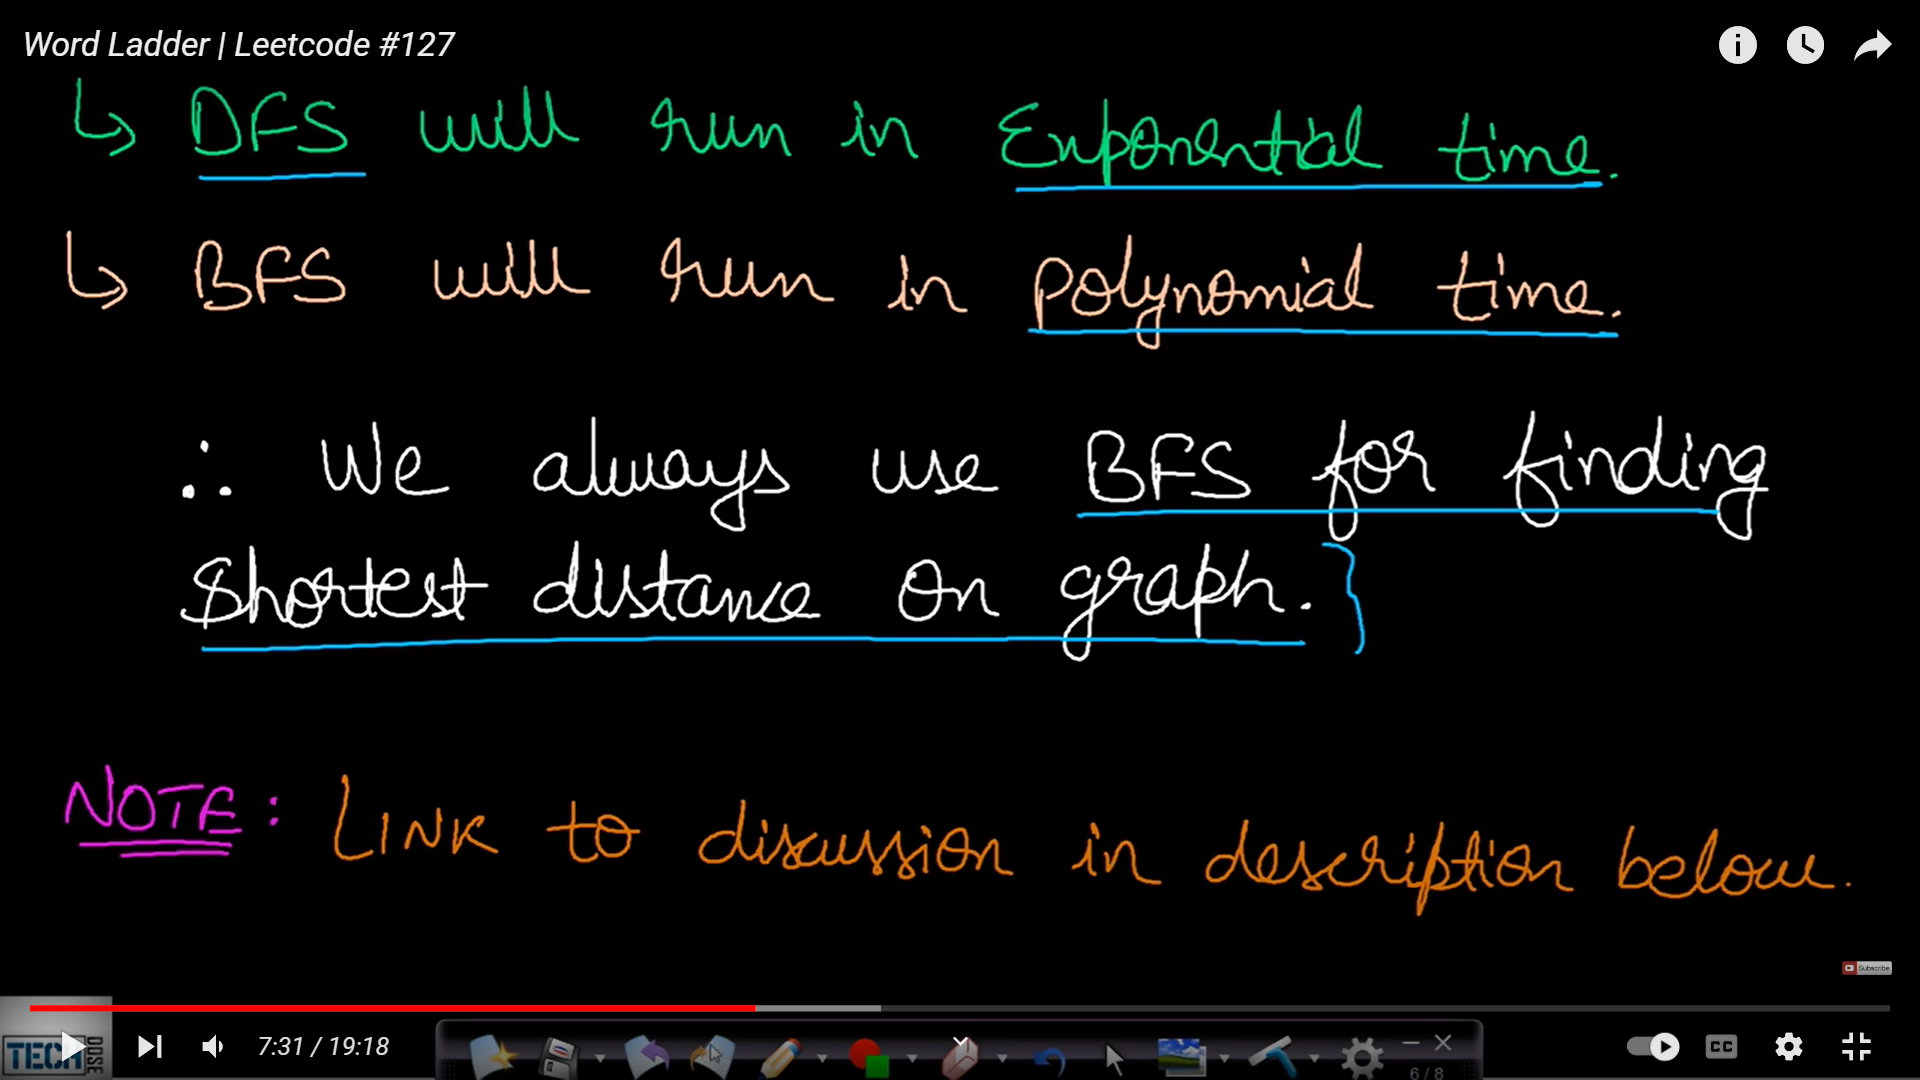 Word Ladder | Leetcode #127
↳ DFS will run in Exponential time.
↳ BFS will run in polynomial time.
∴ We always use BFS for finding
Shortest distance on graph.
NOTE: LINK to discussion in description below.
Subscribe
TECH DOSE
7:31 / 19:18
CC
6 / 8